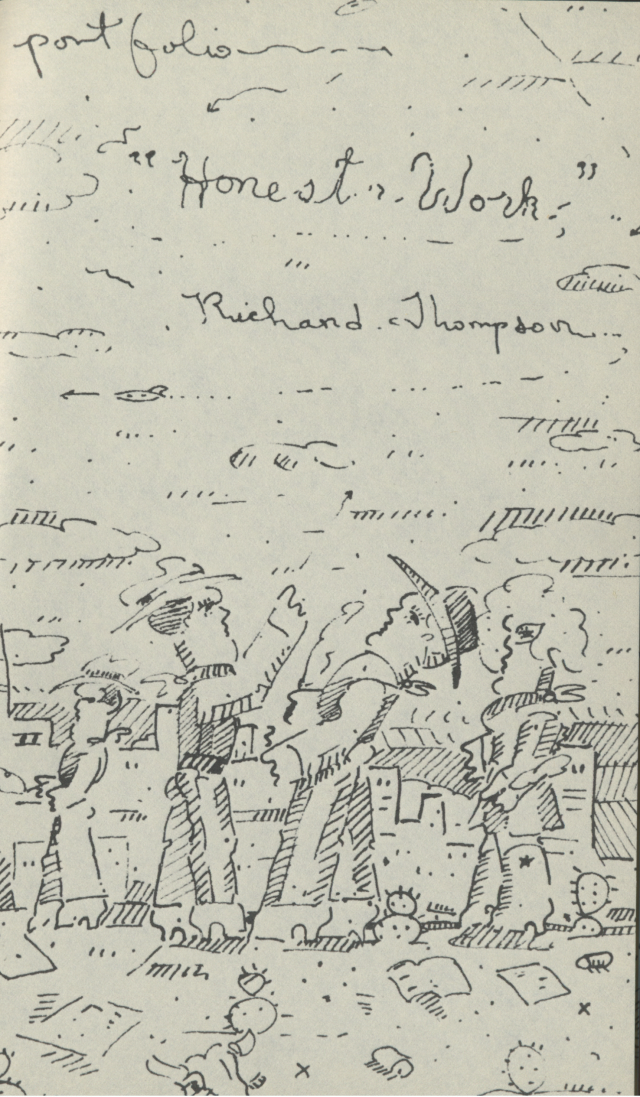 portfolio
"Honest Work"
Richard Thompson